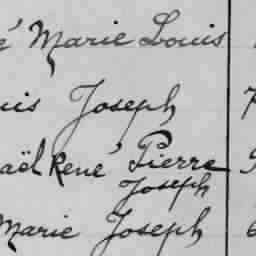 é Marie Louis
uis Joseph 7
aël René Pierre
Joseph
Marie Joseph 6